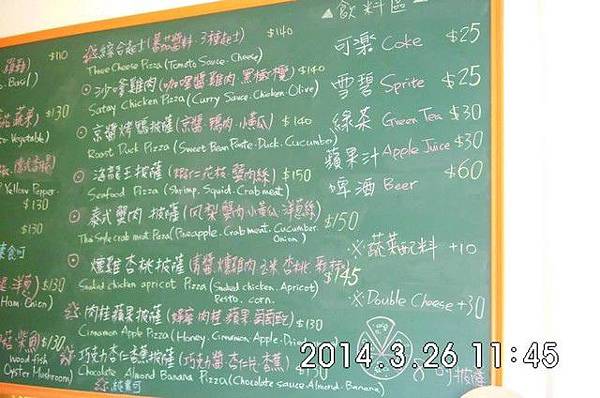 ▲飲料區▲
$110
綜合起士(蕃茄醬料．3種起士) $140
Three Cheese Pizza (Tomato Sauce. Cheese)
Basil)
沙嗲雞肉(咖哩醬 雞肉 黑橄欖) $140
Satay Chicken Pizza (Curry Sauce. Chicken. Olive)
$130
Vegetable)
京醬烤鴨披薩(京醬 鴨肉 小黃瓜) $140
Roast Duck Pizza (Sweet Bean Paste. Duck. Cucumber)
海龍王披薩(蝦仁 花枝 蟹肉絲) $150
Seafood Pizza (Shrimp. Squid. Crab meat)
Yellow Pepper
$130
泰式蟹肉披薩(鳳梨 蟹肉 小黃瓜 洋蔥絲) $150
Thai Style crab meat Pizza (Pineapple. Crab meat. Cucumber.
Onion)
$130
燻雞杏桃披薩(青醬 燻雞肉 玉米 杏桃
$145
Smoked chicken apricot Pizza (Smoked chicken. Apricot)
Pesto. corn.
洋蔥) $130
Ham. Onion)
肉桂蘋果披薩(蜂蜜 肉桂 蘋果 葡萄乾) $130
Cinnamon Apple Pizza (Honey. Cinnamon. Apple. Dried
$130
wood fish
Oyster Mushroom)
巧克力杏仁香蕉披薩(巧克力醬 杏仁片 香蕉) $130
Chocolate Almond Banana Pizza (Chocolate sauce. Almond. Banana)
純素可
可樂 Coke $25
雪碧 Sprite $25
綠茶 Green Tea $30
蘋果汁 Apple Juice $30
啤酒 Beer $60
※蔬菜配料 +10
※Double Cheese +30
披薩
2014.3.26 11:45